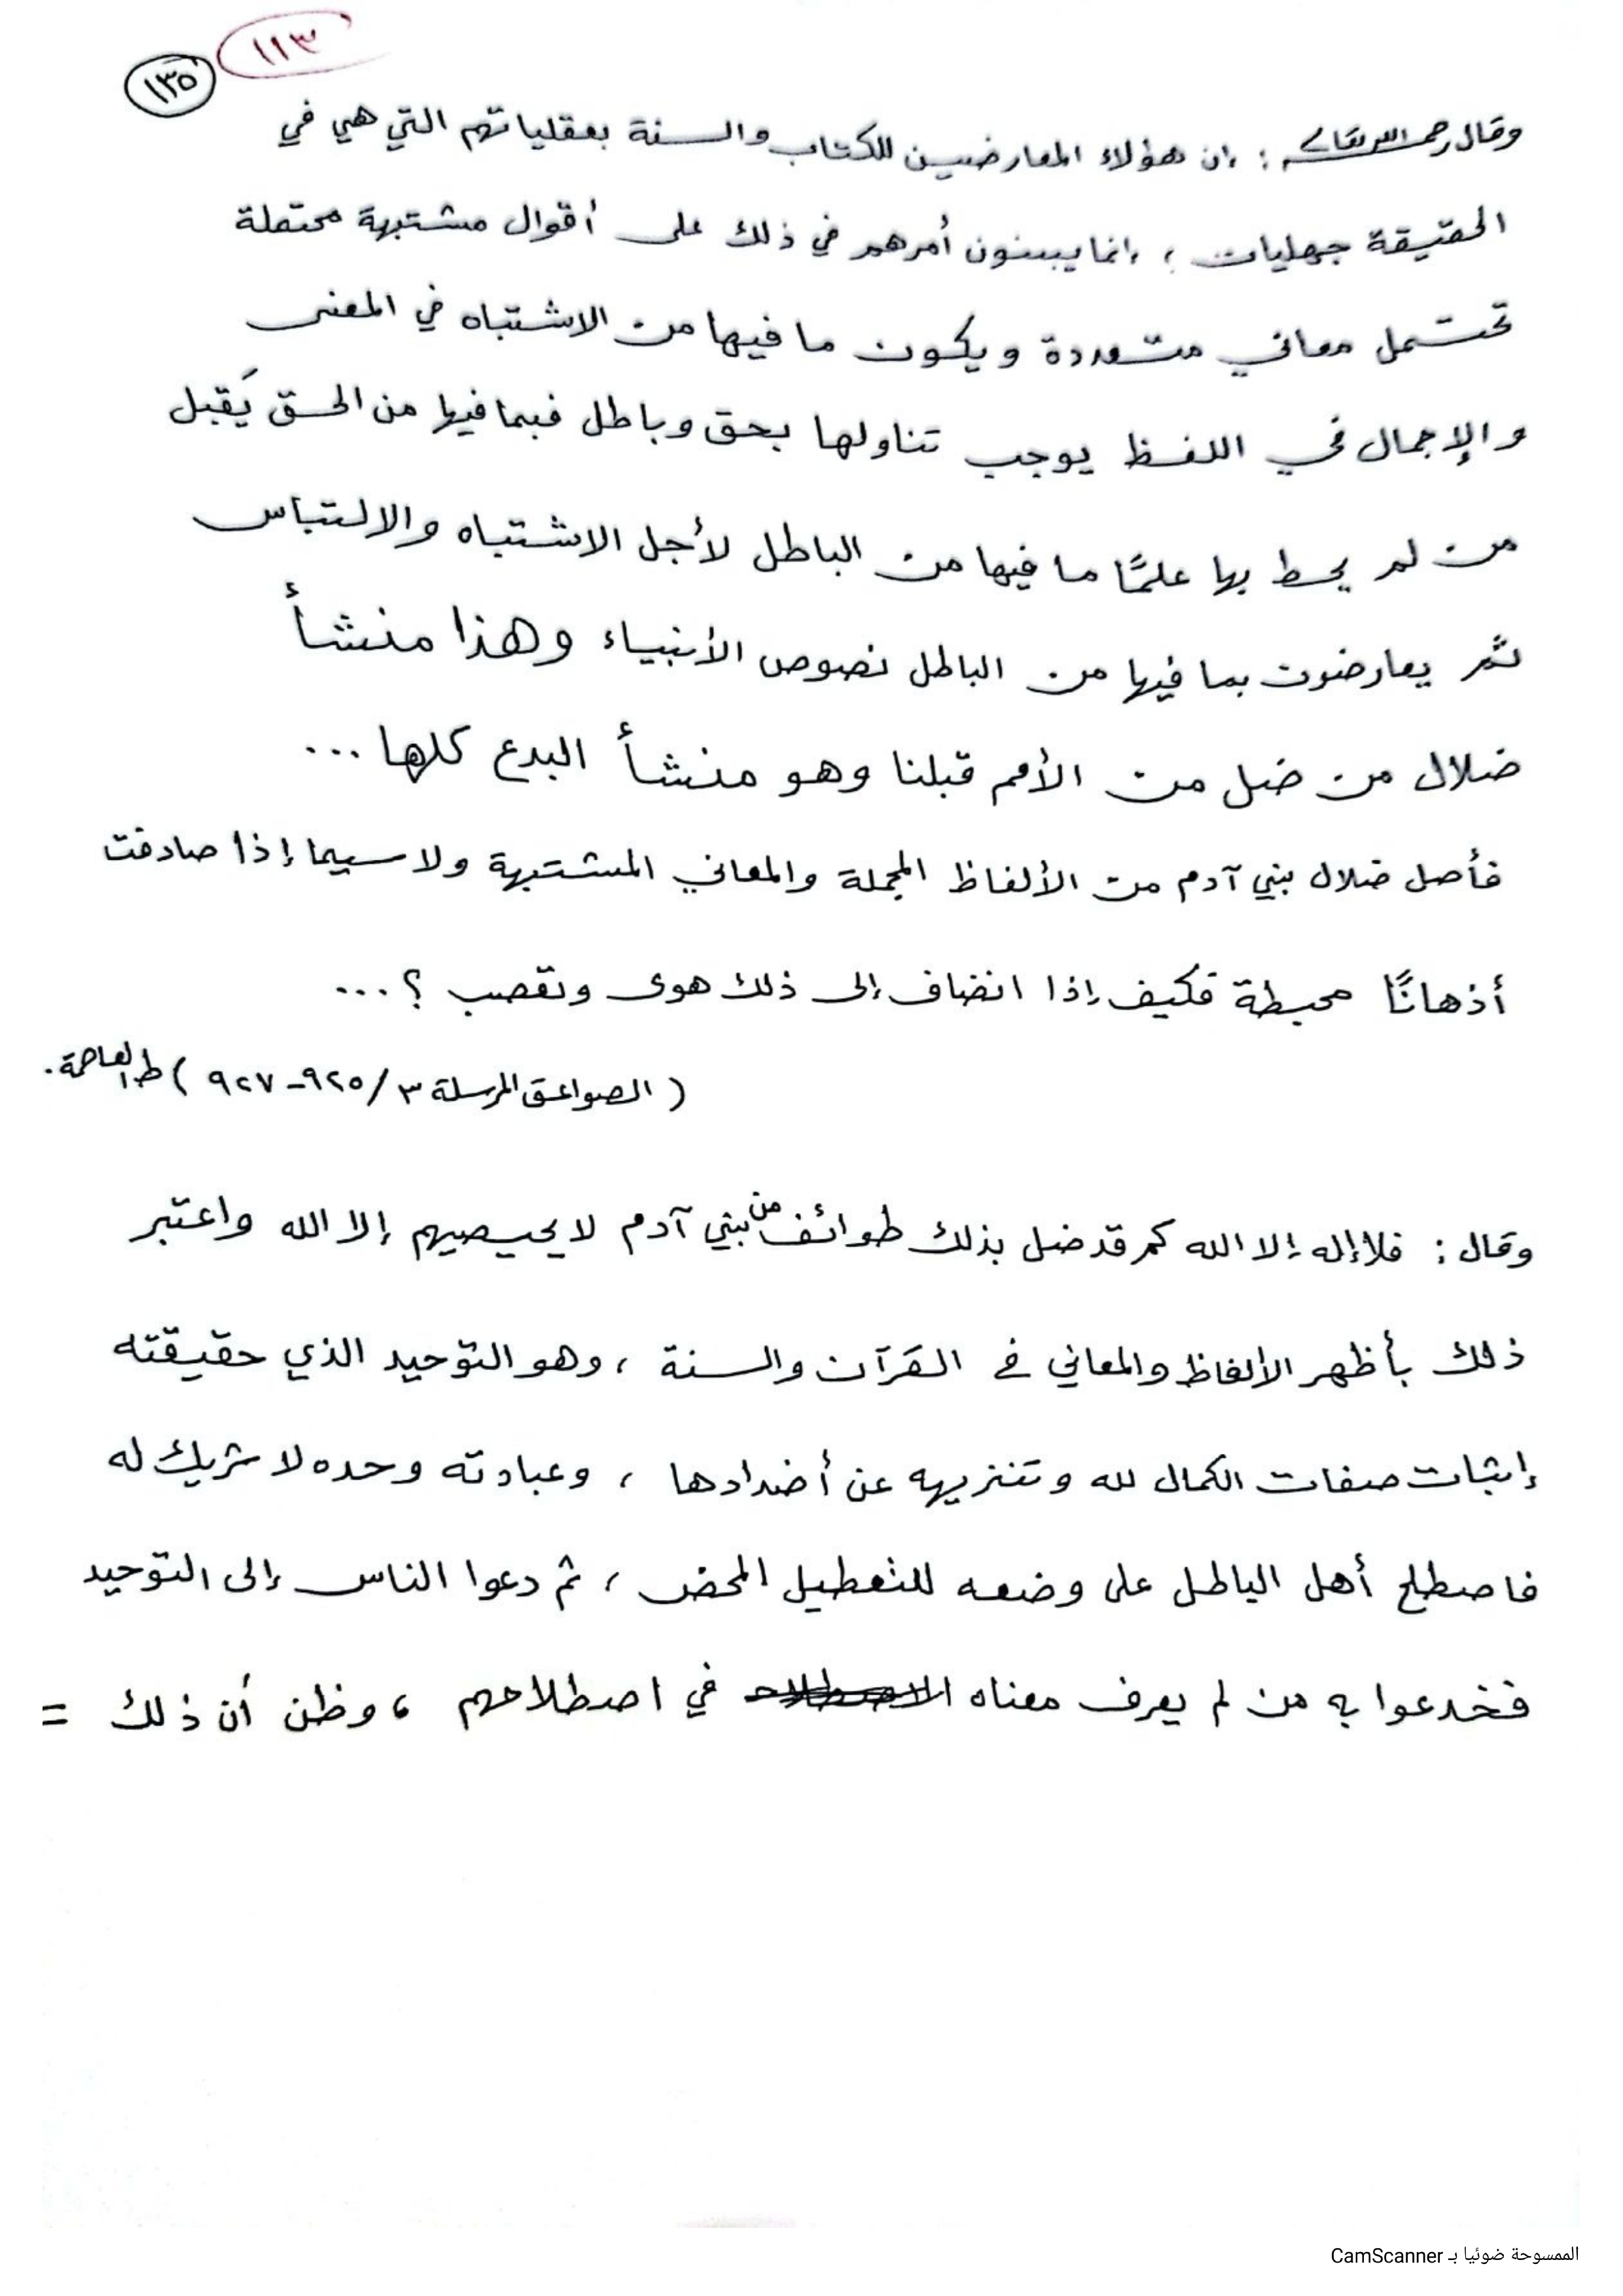 ١١٣
١٣٥
وقال رحمه الله تعالى : إن هؤلاء المعارضين للكتاب والسنة بعقلياتهم التي هي في
الحقيقة جهليات ، إنما يبنون أمرهم في ذلك على أقوال مشتبهة محتملة
تحتمل معاني متعددة ويكون ما فيها من الاشتباه في المعنى
والإجمال في اللفظ يوجب تناولها بحق وباطل فبما فيها من الحق يَقبل
من لم يحط بها علمًا ما فيها من الباطل لأجل الاشتباه والالتباس
ثم يعارضون بما فيها من الباطل نصوص الأنبياء وهذا منشأ
ضلال من ضل من الأمم قبلنا وهو منشأ البدع كلها ...
فأصل ضلال بني آدم من الألفاظ المجملة والمعاني المشتبهة ولا سيما إذا صادفت
أذهانًا محبطة فكيف إذا انضاف إلى ذلك هوى وتعصب ؟ ...
( الصواعق المرسلة ٣/ ٩٢٥-٩٢٧ ) ط العاصمة .
وقال : فلا إله إلا الله كم قد ضل بذلك طوائف من بني آدم لا يحصيهم إلا الله واعتبر
ذلك بأظهر الألفاظ والمعاني في القرآن والسنة ، وهو التوحيد الذي حقيقته
إثبات صفات الكمال لله وتنزيهه عن أضدادها ، وعبادته وحده لا شريك له
فاصطلح أهل الباطل على وضعه للتعطيل المحض ، ثم دعوا الناس إلى التوحيد
فخدعوا به من لم يعرف معناه في اصطلاحهم ، وظن أن ذلك =
الممسوحة ضوئيا بـ CamScanner